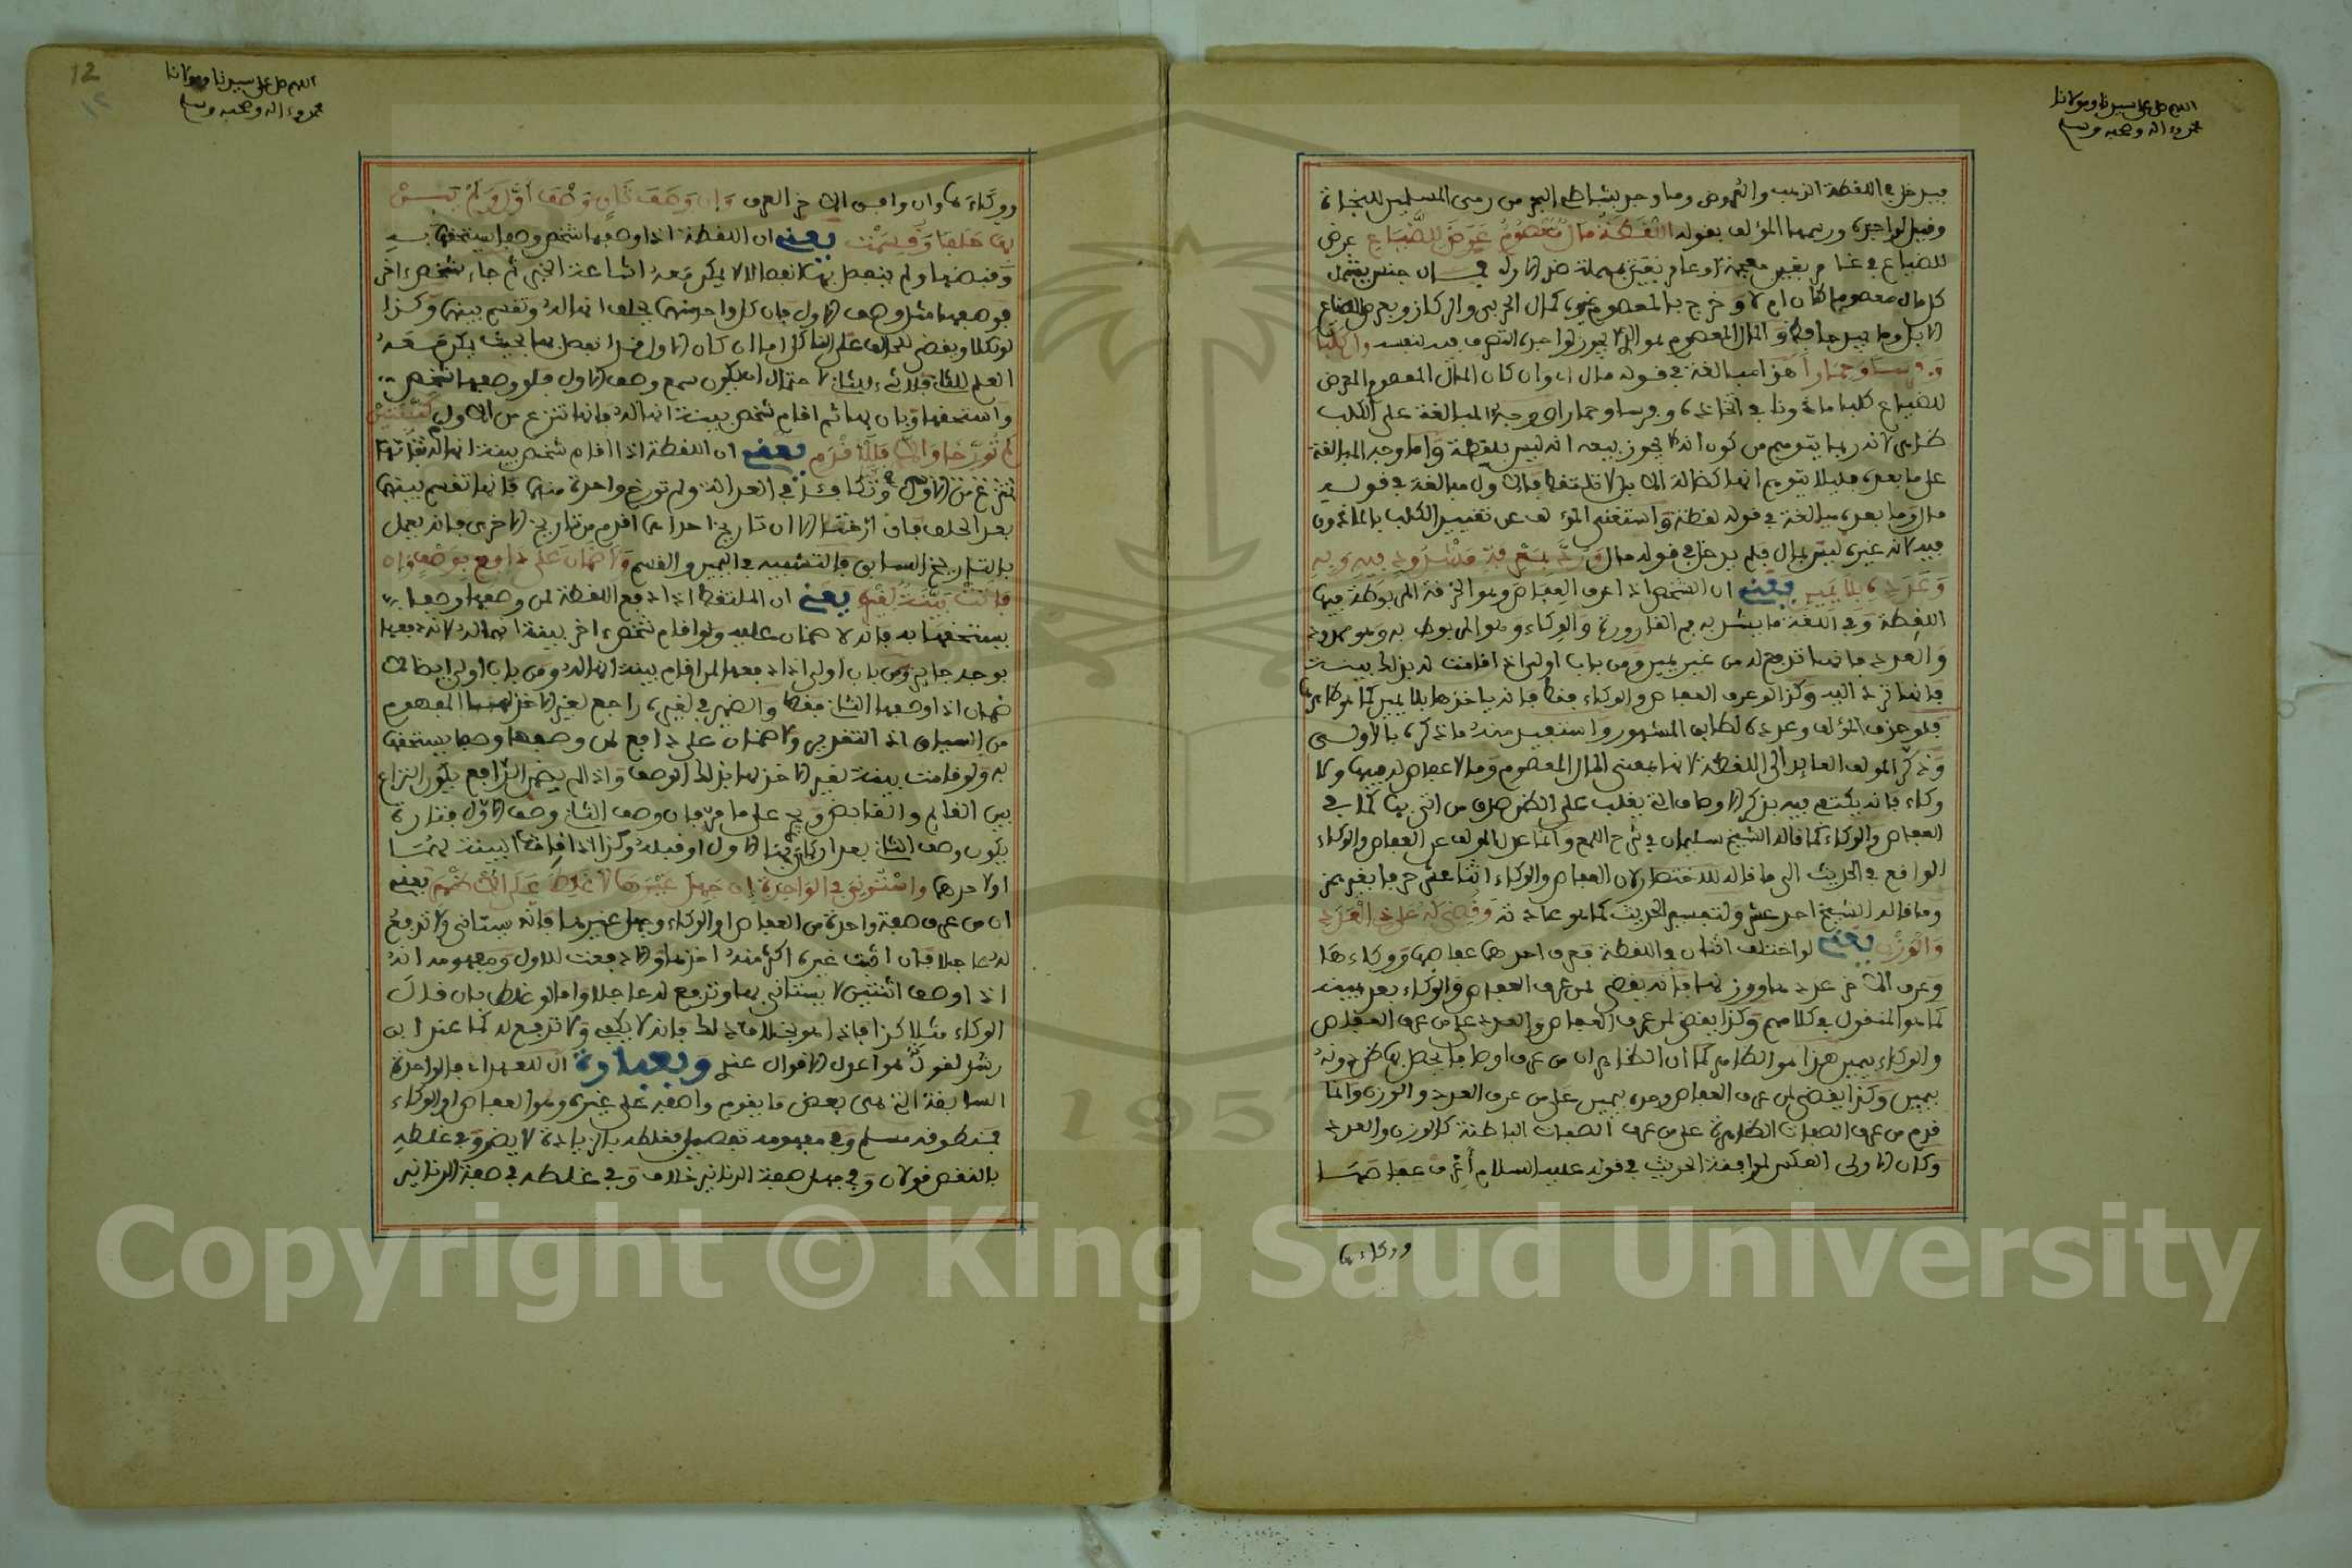 اللهم صل على سيدنا ومولانا
محمد وءاله وصحبه وسلم
فيدخل في اللقطة الذهب والعروض وما وجد بشاطئ البحر من رمى المسلمين للنجاة
وقيل لواجده ورسمها المؤلف بقوله اللُّقَطَةُ مَالٌ مَعْصُومٌ عَرَضَ لِلضَّيَاعِ عرض
للضياع في غامر بغين معجمة او عامر بعين مهملة ضد الاول فمال جنس يشمل
كل مال معصوما كان ام لا وخرج بالمعصوم غيره كمال الحربي والركاز وبعرض للضياع
الابل وما بيد حافظ والمال المعصوم هو الذي لا يجوز لواجده التصرف فيه لنفسه وان كلبا
وفرسا وحمارا هذا مبالغة في قوله مال اي وان كان المال المعصوم المعرض
للضياع كلبا ماذونا في اتخاذه وفرسا وحمارا ووجه المبالغة على الكلب
ظاهر لانه ربما يتوهم من كون انه لا يجوز بيعه انه ليس بلقطة واما وجه المبالغة
على ما بعده فليلا يتوهم انها كضالة الابل لا تلتقط فالاول مبالغة في قوله
مال وما بعده مبالغة في قوله لقطة واستغنى المؤلف عن تقييد الكلب بالماذون
فيه لان غيره ليس بمال فلم يدخل في قوله مال ورد بمعرفة مشدود فيه وبه
وعدده بلا يمين يعني ان الشخص اذا عرف العفاص وهو الخرقة المربوطة فيها
اللقطة وفي اللغة ما يشد به فم القارورة والوكاء وهو الذي يربط به وهو ممدود
والعدد فانها تدفع له من غير يمين ومن باب اولى اذا اقامت له بذلك بينة
فانها ترد اليه وكذا لو عرف العفاص والوكاء فقط فانه ياخذها بلا يمين كما هو ظاهرها
فلو حذف المؤلف وعدده لطابق المشهور واستفيد منه ما ذكره بالاولى
وذكر المؤلف العائد الى اللقطة لانها بمعنى المال المعصوم وما لا عفاص له فيها ولا
وكاء فانه يكتفى فيه بذكر الاوصاف التي يغلب على الظن صدق من اتى بها كما في
العفاص والوكاء كما قاله الشيخ سليمان في شرح اللمع وانما عدل المؤلف عن العفاص والوكاء
الواقع في الحديث الى ما قاله للاختصار لان العفاص والوكاء اثنا عشر حرفا بغير همز
وما قاله الشيخ احد عشر ولتفسير الحديث كما هو عادته وقضي له على ذي العدد
والوزن يعني لو اختلف اثنان في اللقطة فعرف احدهما عفاصها ووكاءها
وعرف الاخر عددها ووزنها فانه يقضى لمن عرف العفاص والوكاء بعد يمينه
كما هو المنقول في كلامهم وكذا يقضى لمن عرف العفاص والعدد على من عرف العفاص
والوكاء بيمين هذا هو الظاهر كما ان الظاهر ان من عرف اوصافا يحصل بها ظن دونه
بيمين وكذا يقضى لمن عرف العفاص وحده بيمين على من عرف العدد والوزن وانما
قدم من عرف الصفات الظاهرة على من عرف الصفات الباطنة كالوزن والعدد
وكان الاولى العكس لموافقة الحديث في قوله عليه السلام أعرف عفاصها
ووكاءها
12
١٢
اللهم صل على سيدنا ومولانا
محمد وءاله وصحبه وسلم
ووكاءها وان وافق الاخر العرف وإن وصف ثان وصف أول ولم يبن
بها حلفا وقسمت يعني ان اللقطة اذا وصفها شخص وصفا يستحقها به
وقبضها ولم ينفصل بها انفصالا لا يمكن معه اشاعة الخبر ثم جاء شخص ءاخر
فوصفها مثل وصف الاول فان كل واحد منهما يحلف انها له وتقسم بينهما وكذا
لو نكلا ويقضى للحالف على الناكل اما ان كان الاول قد انفصل بها بحيث يمكن معه
العلم للثاني فلا شيء للثاني لاحتمال ان يكون سمع وصف الاول فلو وصفها شخص
واستحقها وبان بها ثم اقام شخص بينة انها له فانها تنزع من الاول كبينتين
لم تؤرخا والا فللاقدم يعني ان اللقطة اذا اقام شخص بينة انها له فانها
تنزع من الاول وتكافئتا في العدالة ولم تورخ واحدة منهما فانها تقسم بينهما
بعد الحلف فان ارختا الا ان تاريخ احداهما اقدم من تاريخ الاخرى فانه يعمل
بالتاريخ السابق فالتشبيه في اليمين والقسم ولا ضمان على دافع بوصف وإن
قامت بينة لغيره يعني ان الملتقط اذا دفع اللقطة لمن وصفها وصفا
يستحقها به فانه لا ضمان عليه ولو اقام شخص ءاخر بينة انها له لانه دفعها
بوجه جائز ومن باب اولى اذا دفعها لمن اقام بينة انها له ومن باب اولى ايضا لا
ضمان اذا وصفها الثاني فقط والضمير في لغيره راجع لغير الاخذ لها المفهوم
من السياق اذ التقدير ولا ضمان على دافع لمن وصفها وصفا يستحقها
به ولو قامت بينة لغير الاخذ لها بذلك الوصف واذا لم يضمن الدافع يكون النزاع
بين القائم والقابض ويجري على ما مر فان وصف الثاني وصف الاول فتارة
يكون وصف الثاني بعد ان بان بها الاول او قبله وكذا اذا اقاما البينة لهما
او لاحدهما واستوني في الواحدة إن جهل غيرها لا غلط على الأظهر يعني
ان من عرف صفة واحدة من العفاص او الوكاء وجهل غيرها فانه يستانى ولا تدفع
له عاجلا فان اثبت غيره اكثر منه اخذها والا دفعت للاول ومفهومه انه
اذا وصف اثنتين لا يستانى بها وتدفع له عاجلا واما لو غلط بان قال
الوكاء مثلا كذا فاذا هو بخلاف ذلك فانه لا يكفي ولا تدفع له كما عند ابن
رشد لقوله هو اعدل الاقوال عندي وبعبارة ال للعهد اي في الواحدة
السابقة التي هي بعض ما يقوم واصفه على غيره وهو العفاص او الوكاء
فمنطوقه مسلم وفي مفهومه تفصيل فغلطه بالزيادة لا يضر وفي غلطه
بالنقص قولان وفي جهل صفة الدنانير خلاف وفي غلطه في صفة الدنانير
Copyright © King Saud University
1957